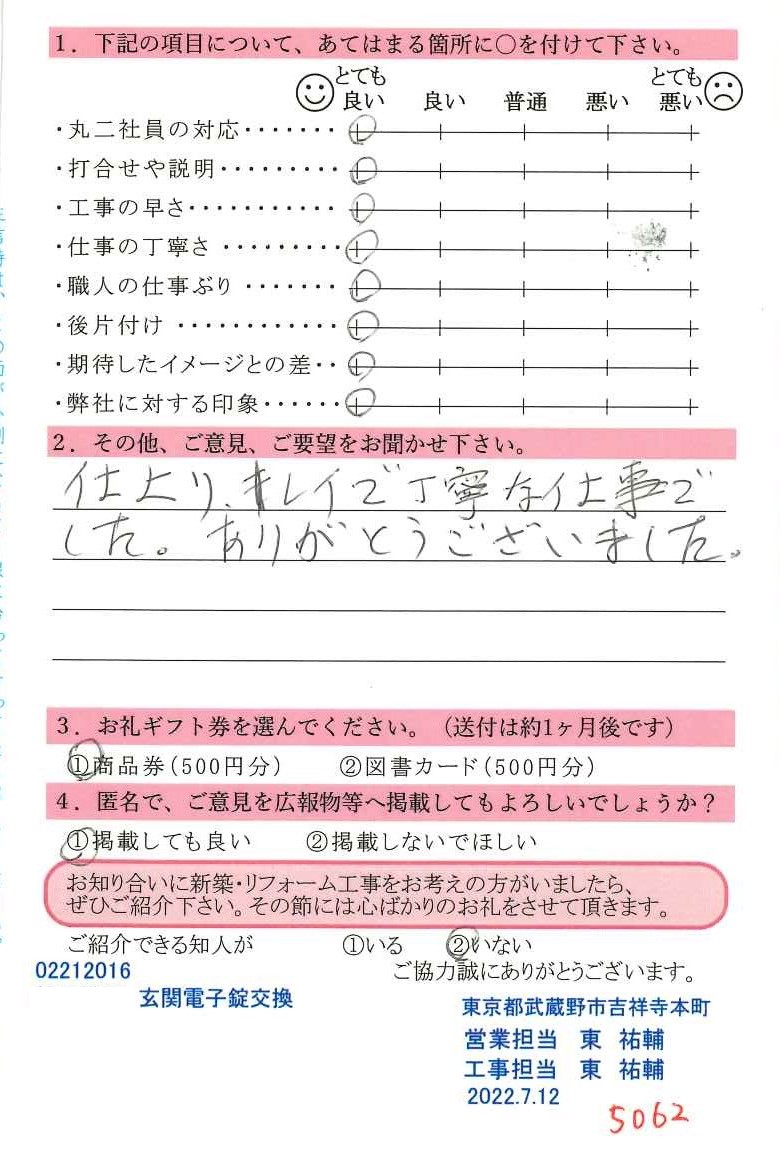 1．下記の項目について、あてはまる箇所に○を付けて下さい。
とても良い 良い 普通 悪い とても悪い
・丸二社員の対応・・・・・・・
・打合せや説明・・・・・・・・・
・工事の早さ・・・・・・・・・・・
・仕事の丁寧さ・・・・・・・・・
・職人の仕事ぶり・・・・・・・
・後片付け・・・・・・・・・・・・
・期待したイメージとの差・・
・弊社に対する印象・・・・・・
2．その他、ご意見、ご要望をお聞かせ下さい。
仕上り、キレイで丁寧な仕事で
した。ありがとうございました。
3．お礼ギフト券を選んでください。（送付は約1ヶ月後です）
①商品券（500円分） ②図書カード（500円分）
4．匿名で、ご意見を広報物等へ掲載してもよろしいでしょうか？
①掲載しても良い ②掲載しないでほしい
お知り合いに新築・リフォーム工事をお考えの方がいましたら、
ぜひご紹介下さい。その節には心ばかりのお礼をさせて頂きます。
ご紹介できる知人が ①いる ②いない
ご協力誠にありがとうございます。
02212016
玄関電子錠交換
東京都武蔵野市吉祥寺本町
営業担当 東 祐輔
工事担当 東 祐輔
2022.7.12
5062